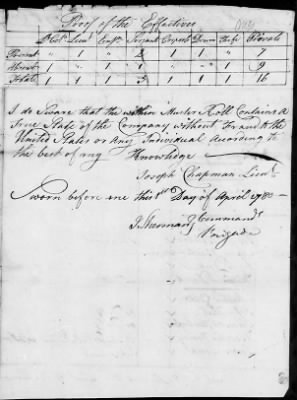 Proof of the Effectives
Lt Col: Lieut Ensn Serjeants Corporl Drum Fife Privats
Present 1 1 " 2 1 1 1 7
Absent " " " 1 1 " " 9
Total 1 1 " 3 1 1 16
I do Sware that the within Muster Roll Contains a
True State of the Company without Fraud to the
United States or Any Individual According to
the best of my Knowledge
Joseph Chapman Lieut
Sworn before me this Day of April 1780
I. Sherman Commandt
Brigade